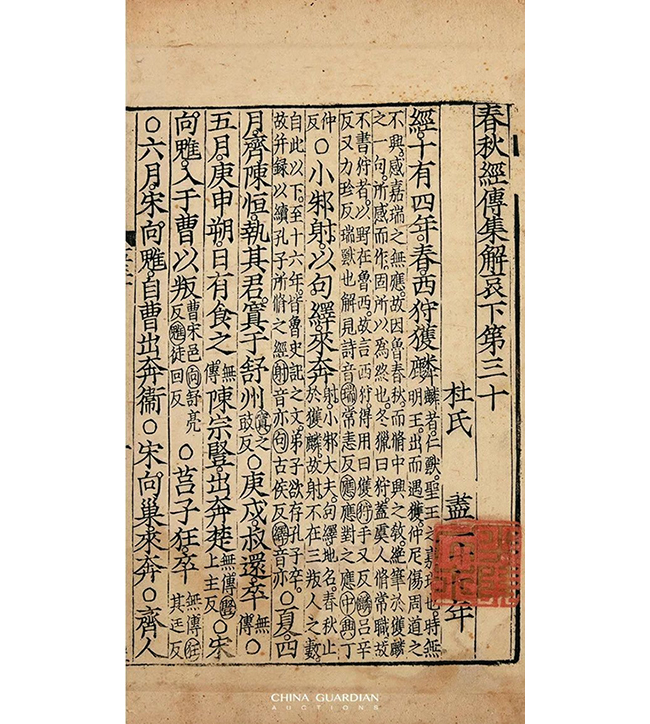 春秋經傳集解哀下第三十
杜氏 盡 年
經十有四年。春。西狩獲麟麟者仁獸。聖王之嘉瑞也。時無明王。出而遇獲。仲尼傷周道之
不興。感嘉瑞之無應。故因魯春秋。而脩中興之教。絶筆於獲麟
之一句。所感而作。固所以爲然也。冬獵曰狩。蓋虞人脩常職。故
不書狩者。以野在魯西。故言西狩。得用曰獲。狩手又反。麟吕辛
反又力珍反瑞獸也解見詩音瑞常恚反應應對之應中興丁
仲反○小邾射。以句繹來奔射。小邾大夫。句繹。地名。春秋止於獲麟。故射不在三叛人之數。
自此以下。至十六年。皆魯史記之文。弟子欲存孔子卒。故并録以續孔子所脩之經。射音亦句古侯反繹音亦○夏。四
月。齊陳恒。執其君。寘于舒州寘之豉反○庚戌。叔還。卒無傳○
五月。庚申朔。日有食之無傳陳宗豎。出奔楚無傳豎上主反○宋
向魋。入于曹以叛曹宋邑向舒亮反魋徒回反○莒子狂。卒無傳狂其廷反
○六月。宋向魋。自曹出奔衛。○宋向巢來奔。○齊人
CHINA GUARDIAN
AUCTIONS